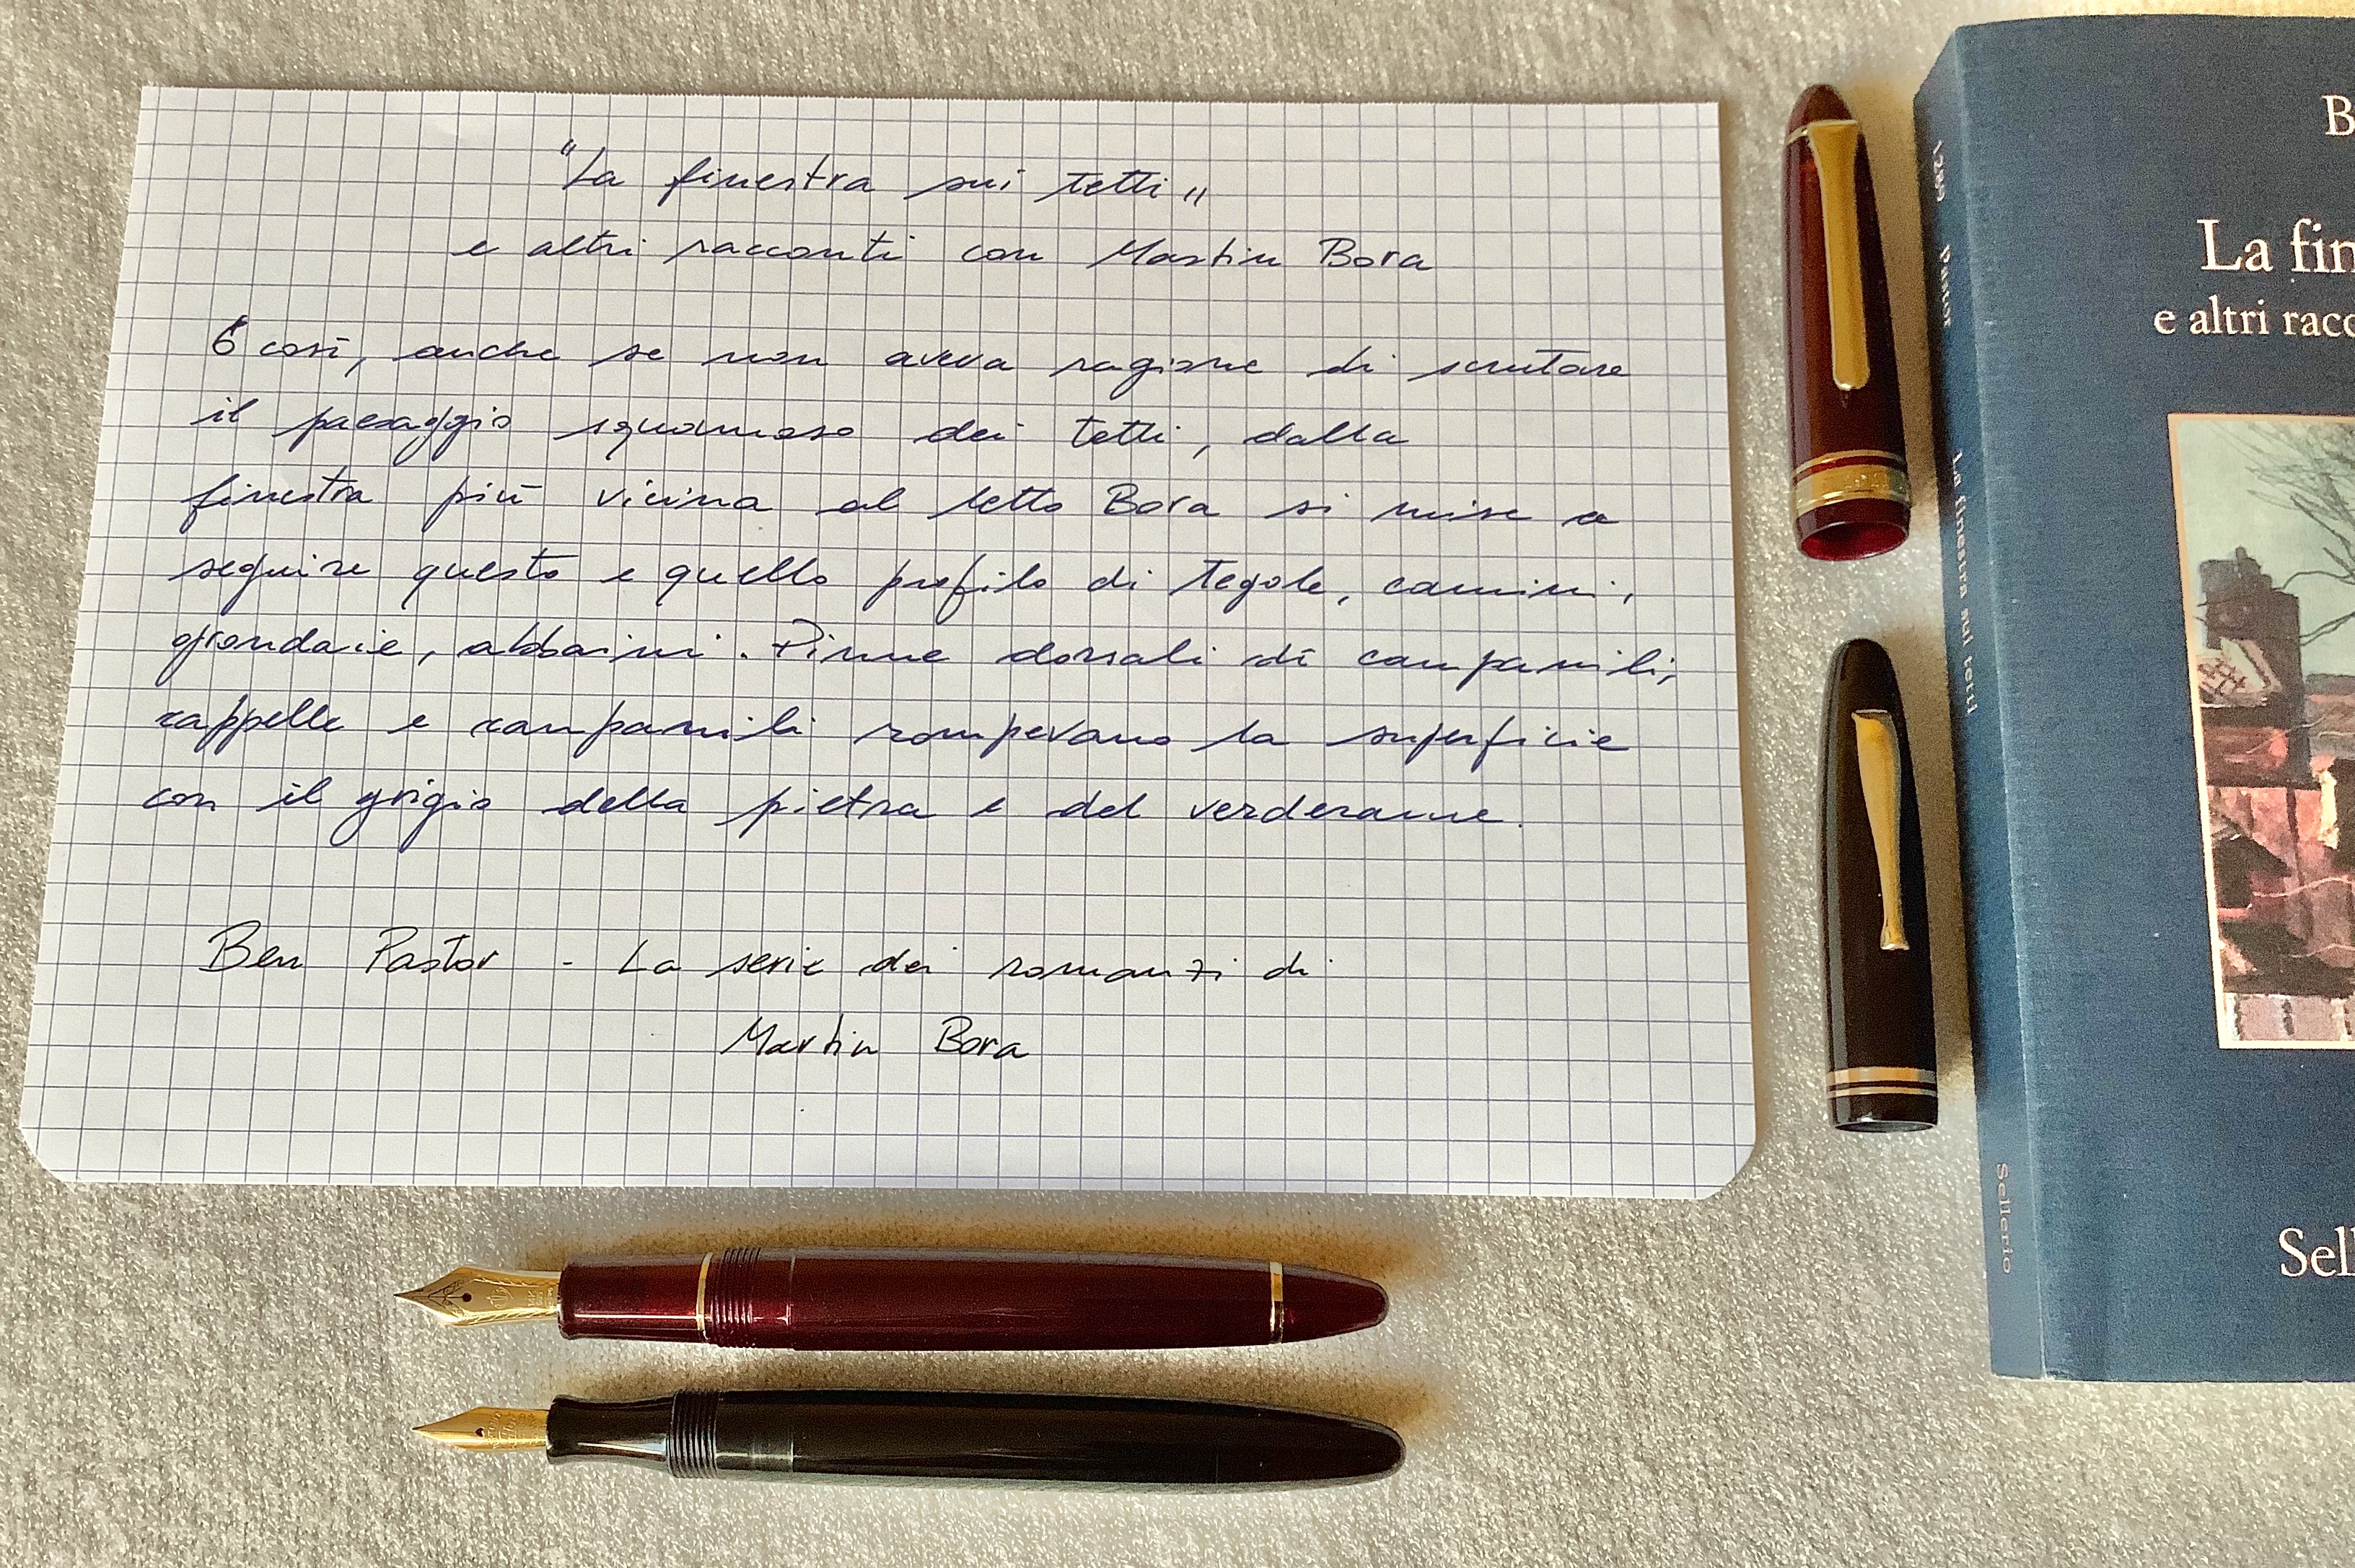 "La finestra sui tetti"
e altri racconti con Martin Bora
E così, anche se non aveva ragione di scrutare
il paesaggio squamoso dei tetti, dalla
finestra più vicina al letto Bora si mise a
seguire questo e quello profilo di tegole, camini,
grondaie, abbaini. Pinne dorsali di campanili,
cappelle e campanili rompevano la superficie
con il grigio della pietra e del verderame.
Ben Pastor - La serie dei romanzi di
Martin Bora
B
La fin
e altri racc
Sell
Pastor
La finestra sui tetti
Sellerio